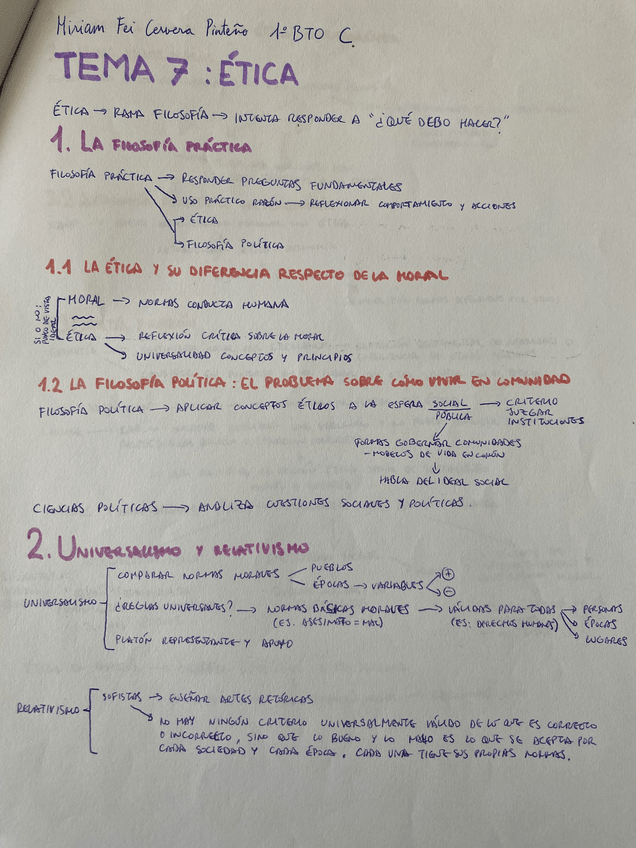 Miriam Fei Cervera Pinteño 1º BTO C.
TEMA 7: ÉTICA
ÉTICA → RAMA FILOSOFÍA → INTENTA RESPONDER A "¿QUÉ DEBO HACER?"
1. LA FILOSOFÍA PRÁCTICA
FILOSOFÍA PRÁCTICA → RESPONDER PREGUNTAS FUNDAMENTALES
USO PRÁCTICO RAZÓN → REFLEXIONAR COMPORTAMIENTO Y ACCIONES
ÉTICA
FILOSOFÍA POLÍTICA
1.1 LA ÉTICA Y SU DIFERENCIA RESPECTO DE LA MORAL
SI O NO: PUNTO DE VISTA IDEAL
MORAL → NORMAS CONDUCTA HUMANA
ÉTICA → REFLEXIÓN CRÍTICA SOBRE LA MORAL
UNIVERSALIDAD CONCEPTOS Y PRINCIPIOS
1.2 LA FILOSOFÍA POLÍTICA: EL PROBLEMA SOBRE CÓMO VIVIR EN COMUNIDAD
FILOSOFÍA POLÍTICA → APLICAR CONCEPTOS ÉTICOS A LA ESFERA SOCIAL → CRITERIO
PÚBLICA JUZGAR
INSTITUCIONES
FORMAS GOBERNAR COMUNIDADES
- MODELOS DE VIDA EN COMÚN
↓
HABLA DEL IDEAL SOCIAL
CIENCIAS POLÍTICAS → ANALIZA CUESTIONES SOCIALES Y POLÍTICAS.
2. UNIVERSALISMO Y RELATIVISMO
UNIVERSALISMO
COMPARAR NORMAS MORALES
PUEBLOS
ÉPOCAS → VARIABLES
+
-
¿REGLAS UNIVERSALES? → NORMAS BÁSICAS MORALES → VÁLIDAS PARA TODAS → PERSONAS
(ES. ASESINATO = MAL) (ES: DERECHOS HUMANOS) ÉPOCAS
LUGARES
PLATÓN REPRESENTANTE Y APOYO
RELATIVISMO
SOFISTAS → ENSEÑAR ARTES RETÓRICAS
NO HAY NINGÚN CRITERIO UNIVERSALMENTE VÁLIDO DE LO QUE ES CORRECTO
O INCORRECTO, SINO QUE LO BUENO Y LO MALO ES LO QUE SE ACEPTA POR
CADA SOCIEDAD Y CADA ÉPOCA. CADA UNA TIENE SUS PROPIAS NORMAS.